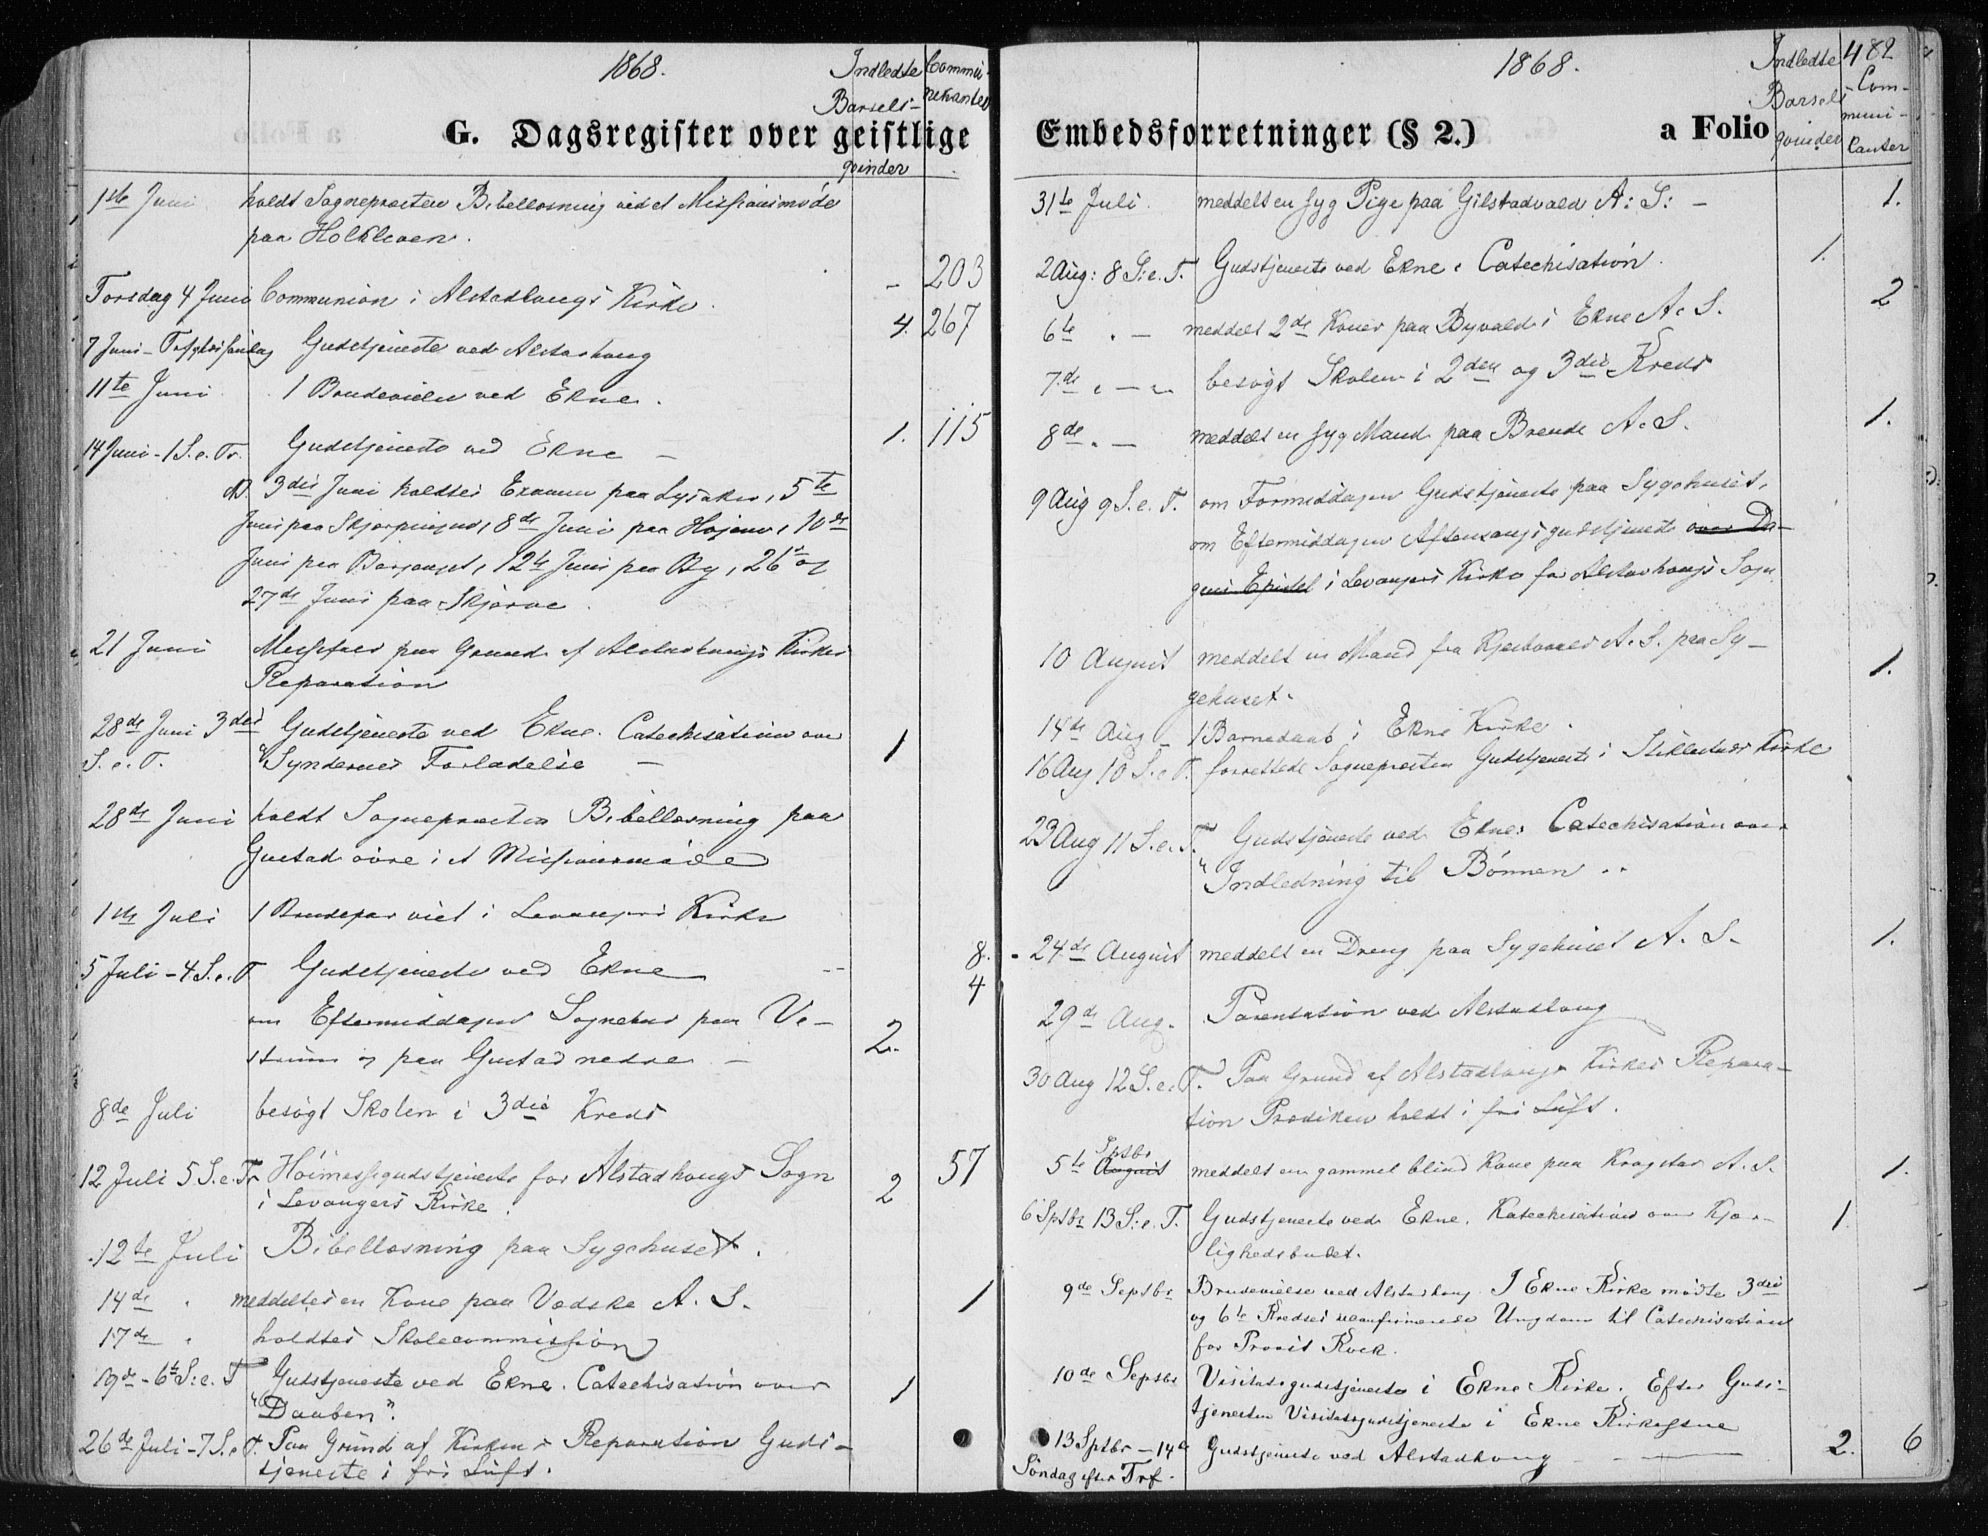 1868.
Indledte Barsels-qvinder
Communikanter
G. Dagsregister over geistlige
1ste Juni holdt Sognepræsten Bibellæsning ved et Missionsmøde
paa Holkleven.
203
Torsdag 4 Juni Communion i Alstadhaugs Kirke. -
7 Juni - Trefoldss̈øndag Gudstjeneste ved Alstadhaug 4. 267
11te Juni 1 Brudevielse ved Ekne.
14 Juni - 1 S. e. Tr. Gudstjeneste ved Ekne - 1. 115
3die Juni holdtes Examen paa Lysaker, 5te
Juni paa Skjerpingen, 8de Juni paa Hojem, 10de
Juni paa 12te Juni paa By, 26de og
27de Juni paa Skjørve.
21 Juni Messefald paa Grund af Alstadhaugs Kirkes
Reparation
28de Juni 3die S. e. T. Gudstjeneste ved Ekne. Catechisation over
"Syndernes Forladelse - 1
28de Juni holdt Sognepræsten Bibellæsning paa
Gustad øvre i et Missionsmøde
1ste Juli 1 Brudepar viet i Levangers Kirke
5 Juli - 4 S. e. T Gudstjeneste ved Ekne 8.
4
om Eftermiddagen Sognebud paa Ve-
strum og paa Gustad nedre - 2.
8de Juli besøgt Skolen i 3die Kreds
12 Juli 5 S. e. Tr Høimessegudstjeneste for Alstadhaugs Sogn 2 57
i Levangers Kirke.
12te Juli Bibellæsning paa Sygehuset.
14de " meddeltes en Kone paa Vedske A. S. 1
17de " holdtes Skolecommission
19de - 6te S: e. T Gudstjeneste ved Ekne. Catechisation over 1
"Daaben".
26de Juli - 7 S. e T. Paa Grund af Kirkens Reparation Guds-
tjeneste i fri Luft.
1868.
Indledte Barsels-qvinder
482
Communicanter
Embedsforretninger (§ 2.) a Folio
31te Juli meddelt en syg Pige paa Gilstadvald A: S: - 1.
2 Aug: 8 S: e. T. Gudstjeneste ved Ekne. Catechisation. 1.
6te " - meddelt 2de Koner paa Byvald i Ekne A. S. 2
7de " - " besøgt Skolen i 2den og 3die Kreds
8de " - meddelt en syg Mand paa Breude A. S. 1.
9 Aug 9 S. e. T. om Formiddagen Gudstjeneste paa Sygehuset,
om Eftermiddagen Aftensangsgudstjeneste over Da-
gens Epistel i Levangers Kirke for Alstadhaugs Sogn
10 August meddelt en Mand fra A. S. paa Sy-
gehuset. 1.
14de Aug - 1 Barnedaab i Ekne Kirke.
16 Aug 10 S. e T. forrettede Sognepræsten Gudstjeneste i Stiklestads Kirke
23 Aug 11 S. e. T. Gudstjeneste ved Ekne: Catechisation over
"Indledning til Bønnen"
24de August meddelt en Dreng paa Sygehuset A. S. 1.
29de Aug. Parentation ved Alstadhaug
30 Aug 12 S. e. T. Paa Grund af Alstadhaugs Kirkes Repara-
tion Prædiken holdt i fri Luft.
Sptbr
5te August meddelt en gammel blind Kone paa Kragstad A. S. 1.
6 Sptbr 13 S. e. T. Gudstjeneste ved Ekne. Katechisation over Kjær-
lighedsbudet. 1.
9de Septbr Brudevielse ved Alstadhaug. I Ekne Kirke mødte 3die
og 6te Kredses uconfirmerede Ungdom til Catechisation
for Provst Kock.
10de Septbr Visitatsgudstjeneste i Ekne Kirke. Efter Guds-
tjenesten Visitatsgudstjeneste i Ekne
13 Sptbr - 14de Gudstjeneste ved Alstadhaug - 2. 6
Søndag efter Tref.